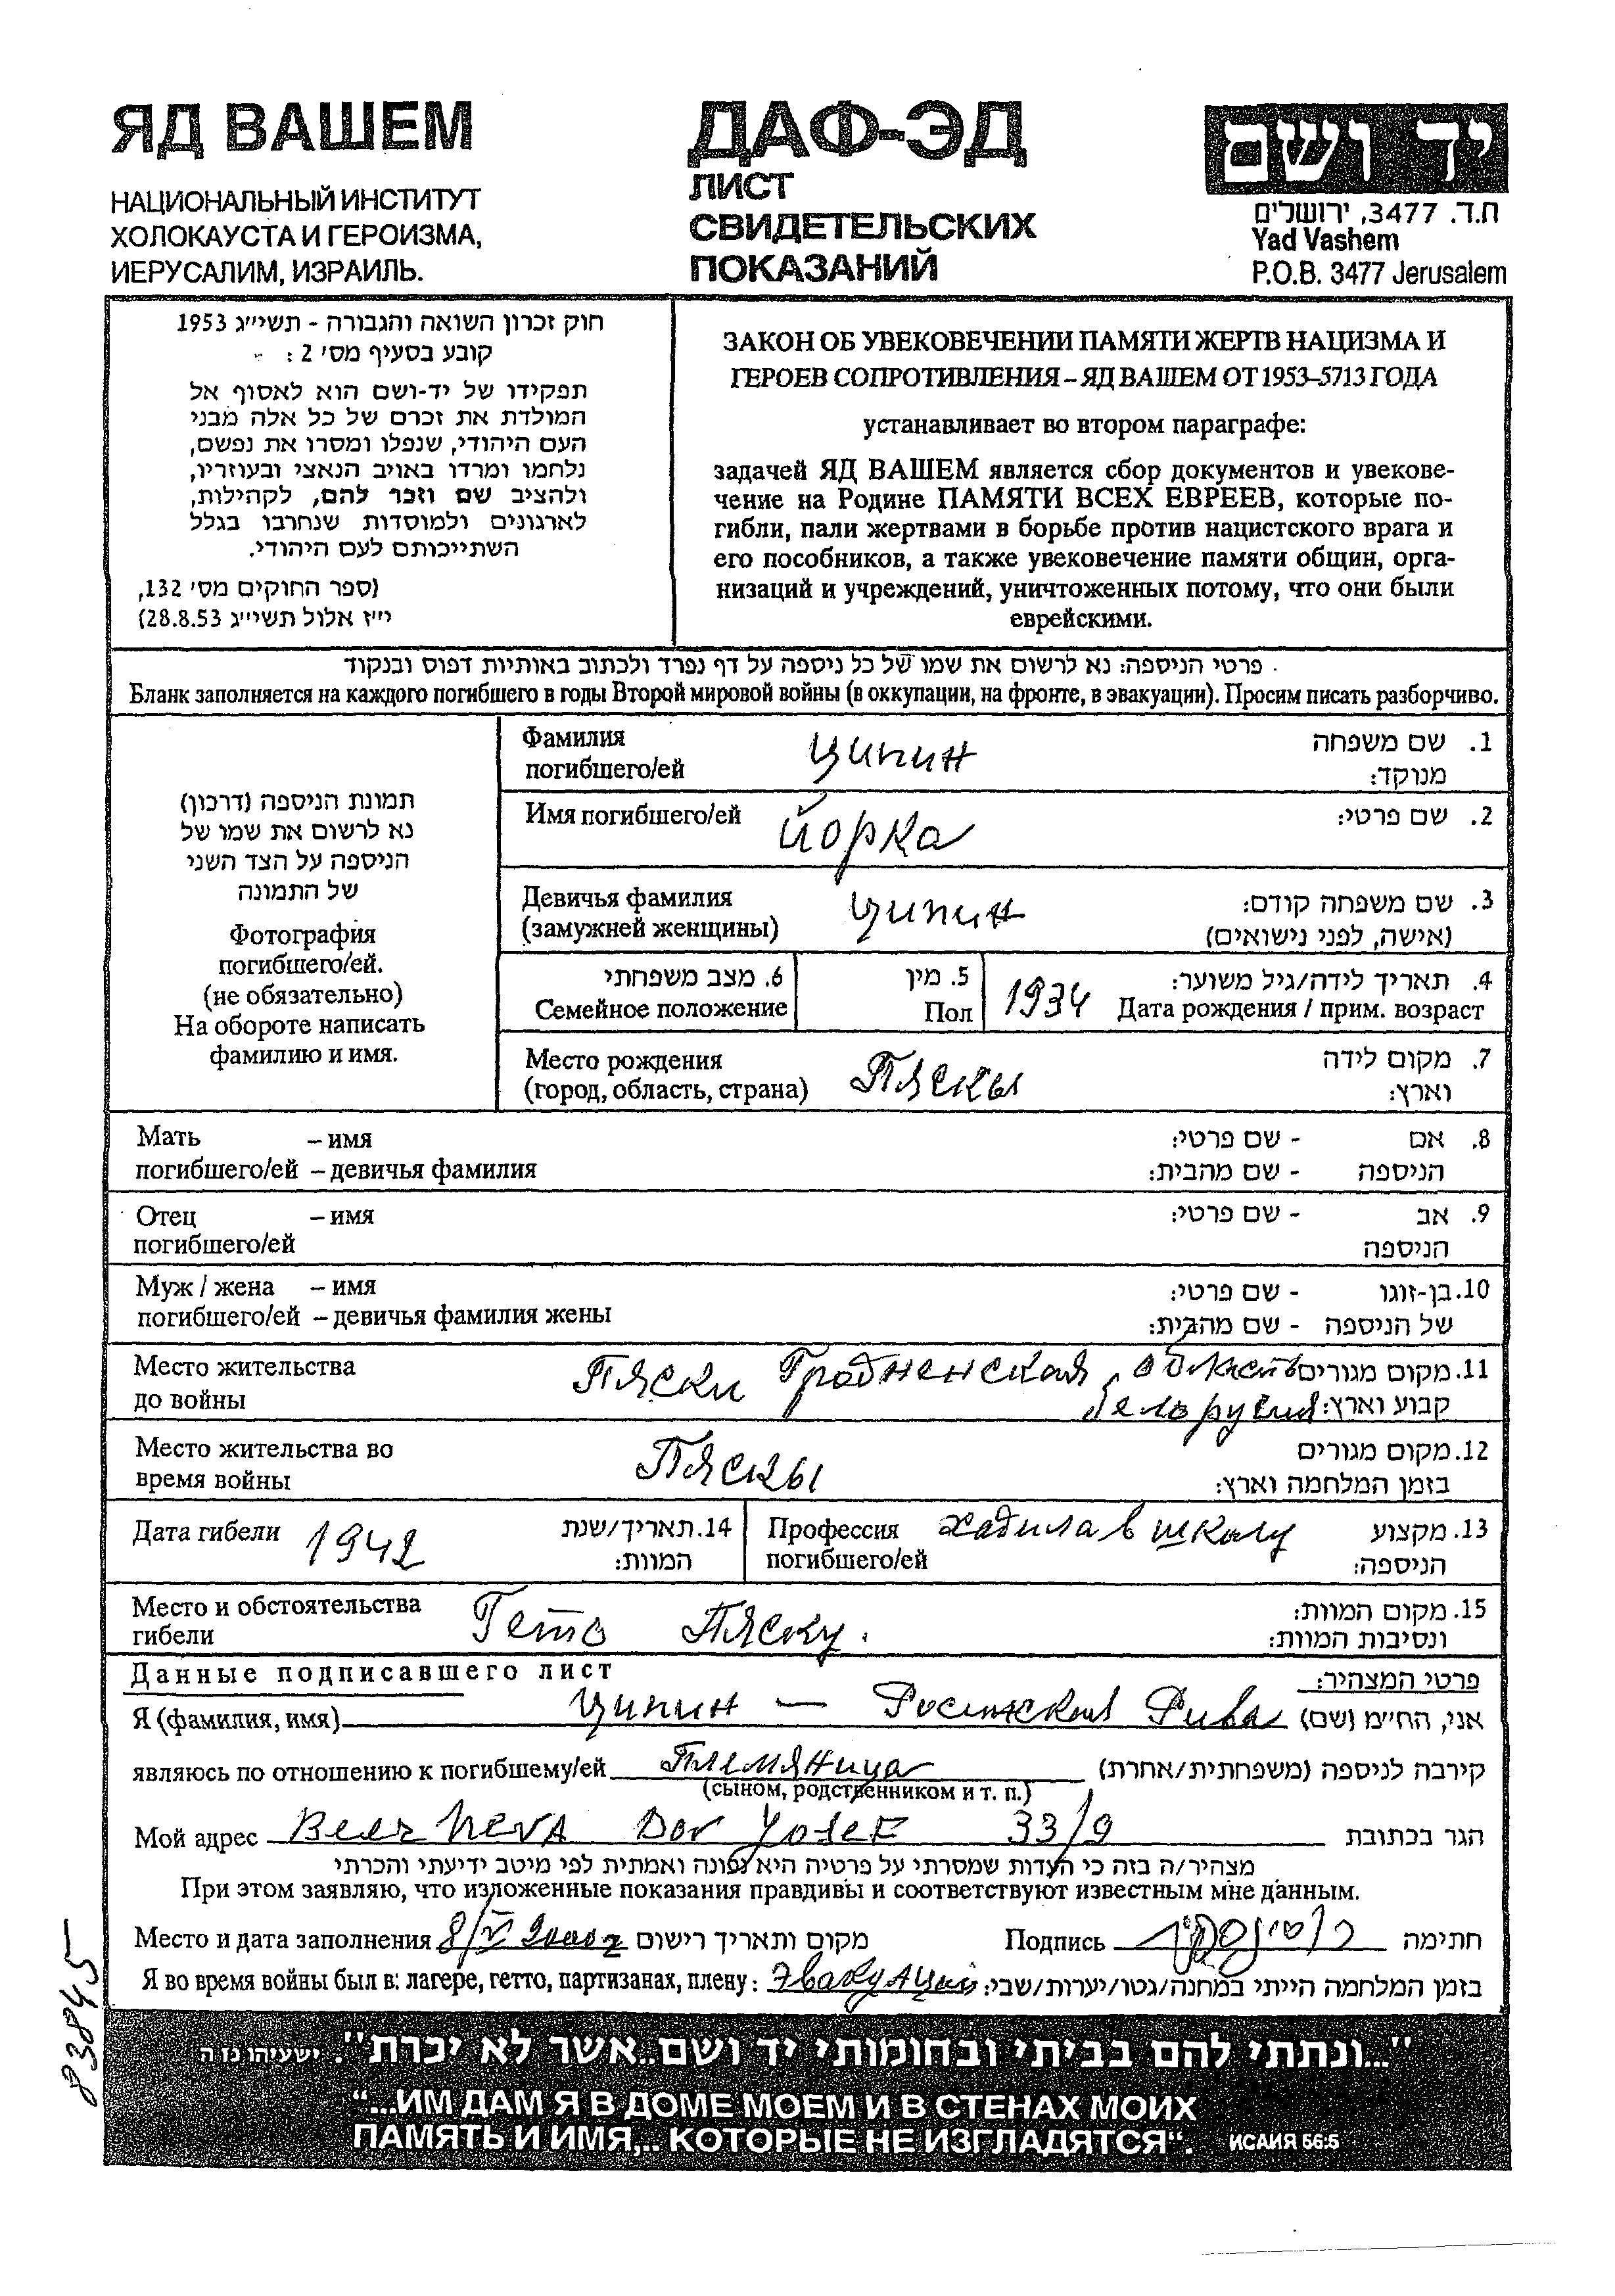 ЯД ВАШЕМ
НАЦИОНАЛЬНЫЙ ИНСТИТУТ
ХОЛОКАУСТА И ГЕРОИЗМА,
ИЕРУСАЛИМ, ИЗРАИЛЬ.
ДАФ-ЭД
ЛИСТ
СВИДЕТЕЛЬСКИХ
ПОКАЗАНИЙ
יד ושם
ת.ד. 3477, ירושלים
Yad Vashem
P.O.B. 3477 Jerusalem
חוק זכרון השואה והגבורה - תשי״ג 1953
קובע בסעיף מס׳ 2 :
תפקידו של יד-ושם הוא לאסוף אל
המולדת את זכרם של כל אלה מבני
העם היהודי, שנפלו ומסרו את נפשם,
נלחמו ומרדו באויב הנאצי ובעוזריו,
ולהציב שם וזכר להם, לקהילות,
לארגונים ולמוסדות שנחרבו בגלל
השתייכותם לעם היהודי.
(ספר החוקים מס׳ 132,
י״ז אלול תשי״ג 28.8.53)
ЗАКОН ОБ УВЕКОВЕЧЕНИИ ПАМЯТИ ЖЕРТВ НАЦИЗМА И
ГЕРОЕВ СОПРОТИВЛЕНИЯ – ЯД ВАШЕМ ОТ 1953–5713 ГОДА
устанавливает во втором параграфе:
задачей ЯД ВАШЕМ является сбор документов и увекове-
чение на Родине ПАМЯТИ ВСЕХ ЕВРЕЕВ, которые по-
гибли, пали жертвами в борьбе против нацистского врага и
его пособников, а также увековечение памяти общин, орга-
низаций и учреждений, уничтоженных потому, что они были
еврейскими.
פרטי הניספה: נא לרשום את שמו של כל ניספה על דף נפרד ולכתוב באותיות דפוס ובנקוד
Бланк заполняется на каждого погибшего в годы Второй мировой войны (в оккупации, на фронте, в эвакуации). Просим писать разборчиво.
תמונת הניספה (דרכון)
נא לרשום את שמו של
הניספה על הצד השני
של התמונה
Фотография
погибшего/ей.
(не обязательно)
На обороте написать
фамилию и имя.
Фамилия Ципин 1. שם משפחה
погибшего/ей מנוקד:
Имя погибшего/ей Йорка 2. שם פרטי:
Девичья фамилия Ципин 3. שם משפחה קודם:
(замужней женщины) (אישה, לפני נישואים)
6. מצב משפחתי 5. מין 4. תאריך לידה/גיל משוער:
Семейное положение Пол 1934 Дата рождения / прим. возраст
Место рождения Пяскы 7. מקום לידה
(город, область, страна) וארץ:
Мать – имя 8. אם - שם פרטי:
погибшего/ей – девичья фамилия הניספה - שם מהבית:
Отец – имя 9. אב - שם פרטי:
погибшего/ей הניספה
Муж / жена – имя 10. בן-זוגו - שם פרטי:
погибшего/ей – девичья фамилия жены של הניספה - שם מהבית:
Место жительства Пяски Гродненская область 11. מקום מגורים
до войны Белорусия קבוע וארץ:
Место жительства во Пяскы 12. מקום מגורים
время войны בזמן המלחמה וארץ:
Дата гибели 1942 14. תאריך/שנת Профессия хадила в школу 13. מקצוע
המוות: погибшего/ей הניספה:
Место и обстоятельства Гето Пяску. 15. מקום המוות:
гибели ונסיבות המוות:
Данные подписавшего лист פרטי המצהיר:
Я (фамилия, имя) Ципин — Рива אני, הח״מ (שם)
являюсь по отношению к погибшему/ей Племяница קירבה לניספה (משפחתית/אחרת)
(сыном, родственником и т. п.)
Мой адрес Beer Neva Dor Yosef 33/9 הגר בכתובת
מצהיר/ה בזה כי העדות שמסרתי על פרטיה היא נכונה ואמתית לפי מיטב ידיעתי והכרתי
При этом заявляю, что изложенные показания правдивы и соответствуют известным мне данным.
Место и дата заполнения 8/V 2000г מקום ותאריך רישום Подпись חתימה
Я во время войны был в: лагере, гетто, партизанах, плену: Эвакуацый בזמן המלחמה הייתי במחנה/גטו/יערות/שבי:
838945
"...ונתתי להם בביתי ובחומותי יד ושם..אשר לא יכרת". ישעיהו נו ה
“...ИМ ДАМ Я В ДОМЕ МОЕМ И В СТЕНАХ МОИХ
ПАМЯТЬ И ИМЯ,.. КОТОРЫЕ НЕ ИЗГЛАДЯТСЯ“. ИСАИЯ 56:5